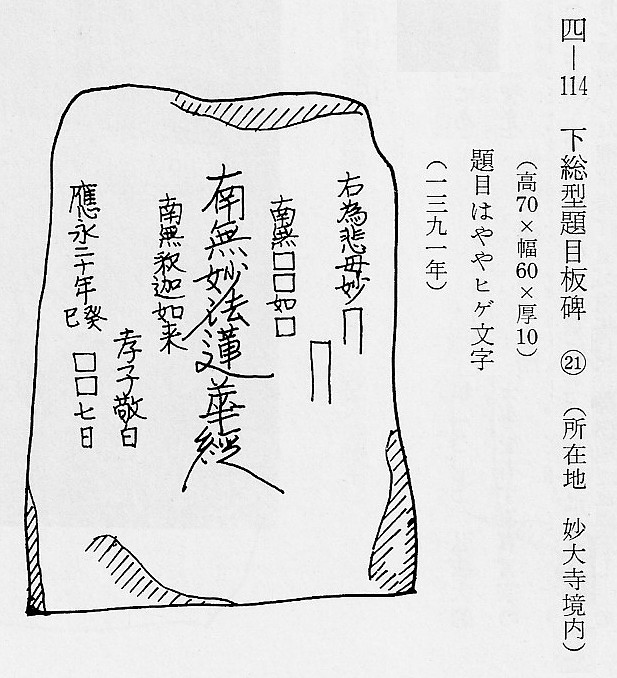 四―114 下総型題目板碑 ㉑ (所在地 妙大寺境内)
(高70×幅60×厚10)
題目はややヒゲ文字
(一三九一年)
右為悲母妙
南無□□如□
南無妙法蓮華經
南無釈迦如来
孝子敬白
應永二十年癸巳 □□七日